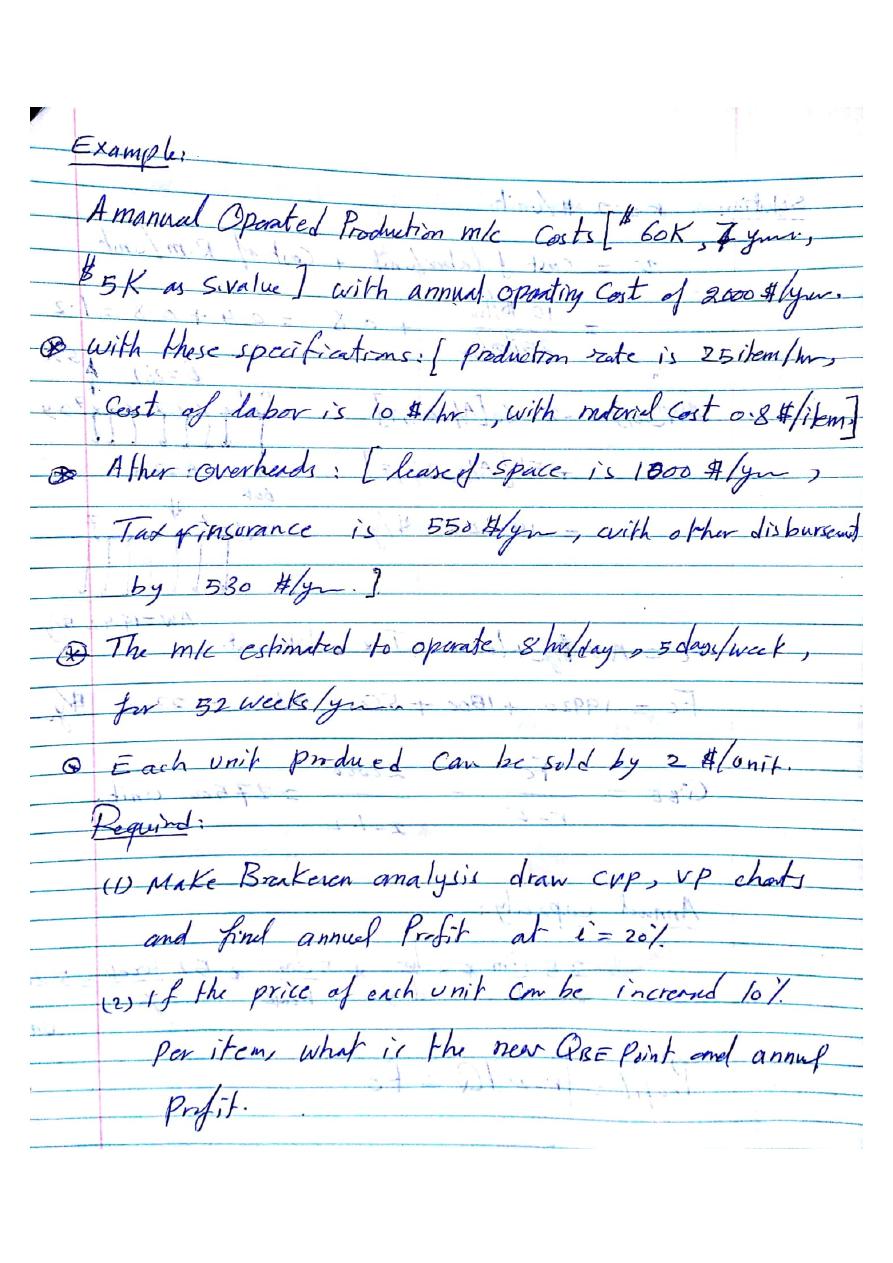 Example:
A manual Operated Production m/c Costs [ $ 60K, 7 years,
$ 5K as S.value ] with annual operating Cost of 2000 $/year.
with these specifications: [ Production rate is 25 item/hr,
Cost of labor is 10 $/hr, with material Cost 0.8 $/item]
Ather overheads : [ lease of space is 1800 $/yr ,
Tax & insurance is 550 $/yr , with other disbursement
by 530 $/yr. ]
The m/c estimated to operate 8 hr/day, 5 days/week,
for 52 weeks/yr.
Each unit produed Can be sold by 2 $/unit.
Required:
(1) Make Breakeven analysis draw CVP, VP charts
and find annual Profit at i = 20%
(2) If the price of each unit Can be increased 10%
Per item, what is the new QBE Point and annual
Profit.